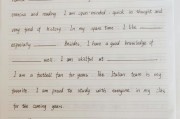 concise and reading. I am open-minded, quick in thought and
very fond of history. In my spare time, I like
especially        . Besides, I have a good knowledge of
was        . I am skillful at
I am a football fan for years, the Italian team is my
favorite. I am proud to study with everyone in my class
for the coming years.